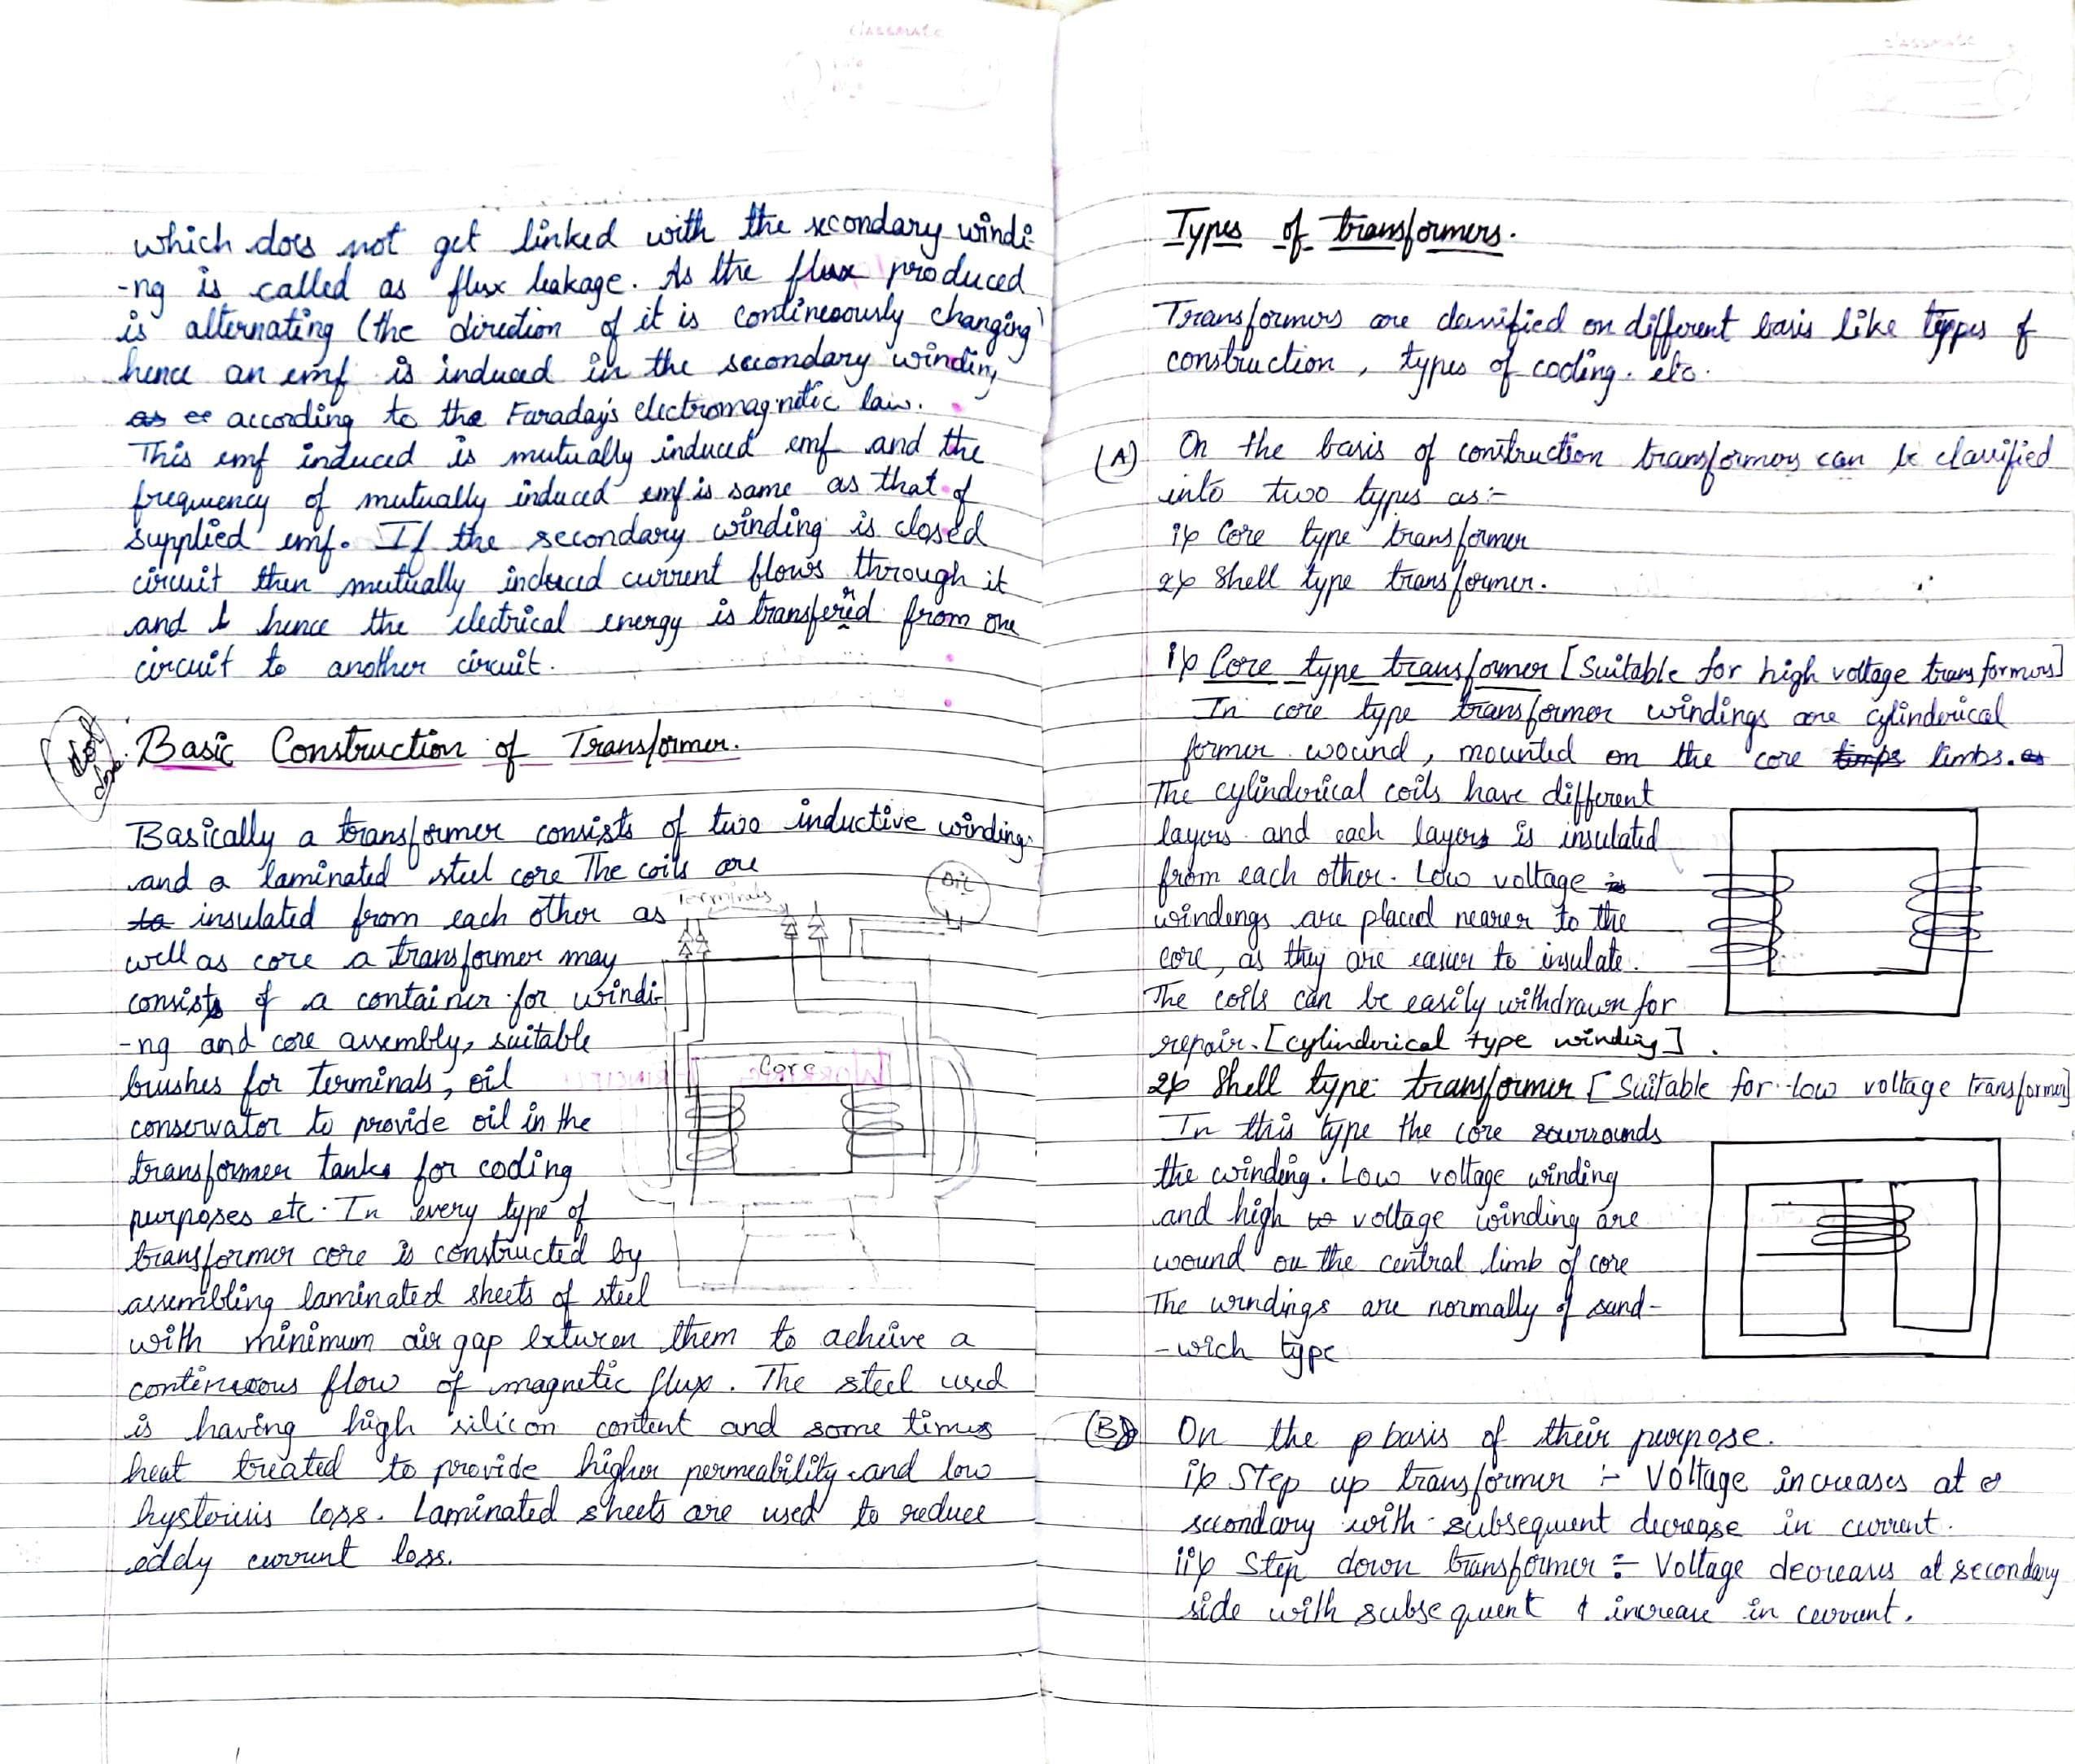 classmate
which does not get linked with the secondary windi-
-ng is called as flux leakage. As the flux produced
is alternating (the direction of it is contineoously changing)
hence an emf is induced in the secondary winding
as ee according to the Faraday's electromagnetic law.
This emf induced is mutually induced emf and the
frequency of mutually induced emf is same as that of
supplied emf. If the secondary winding is closed
circuit then mutually induced current flows through it
and hence the electrical energy is transfered from one
circuit to another circuit.
Basic Construction of Transformer.
Basically a transformer consists of two inductive winding
and a laminated steel core The coils are
to insulated from each other as
well as core a transformer may
consists of a container for windi-
-ng and core assembly, suitable
brushes for terminals, oil
conservator to provide oil in the
transformer tanks for coding
purposes etc. In every type of
transformer core is constructed by
assembling laminated sheets of steel
with minimum air gap between them to acheive a
contineoous flow of magnetic flux. The steel used
is having high silicon content and some times
heat treated to provide higher permeability and low
hysterisis loss. Laminated sheets are used to reduce
eddy current loss.
Terminals
Oil
Core
classmate
Types of transformers.
Transformers are classified on different basis like types of
construction, types of coding. etc.
(A) On the basis of construction transformers can be classified
into two types as:-
1) Core type transformer
2) Shell type transformer.
1) Core type transformer [Suitable for high voltage transformers]
In core type transformer windings are cylinderical
former wound, mounted on the core limps limbs. as
The cylinderical coils have different
layers and each layers is insulated
from each other. Low voltage is
windings are placed nearer to the
core, as they are easier to insulate.
The coils can be easily withdrawn for
repair. [cylinderical type winding].
2) Shell type transformer [Suitable for low voltage transformer]
In this type the core sourrounds
the winding. Low voltage winding
and high vo voltage winding are
wound on the central limb of core
The windings are normally of sand-
-wich type
(B) On the p basis of their purpose.
i) Step up transformer :- Voltage increases at
secondary with subsequent decrease in current.
ii) Step down transformer :- Voltage decreases at secondary
side with subsequent increase in current.